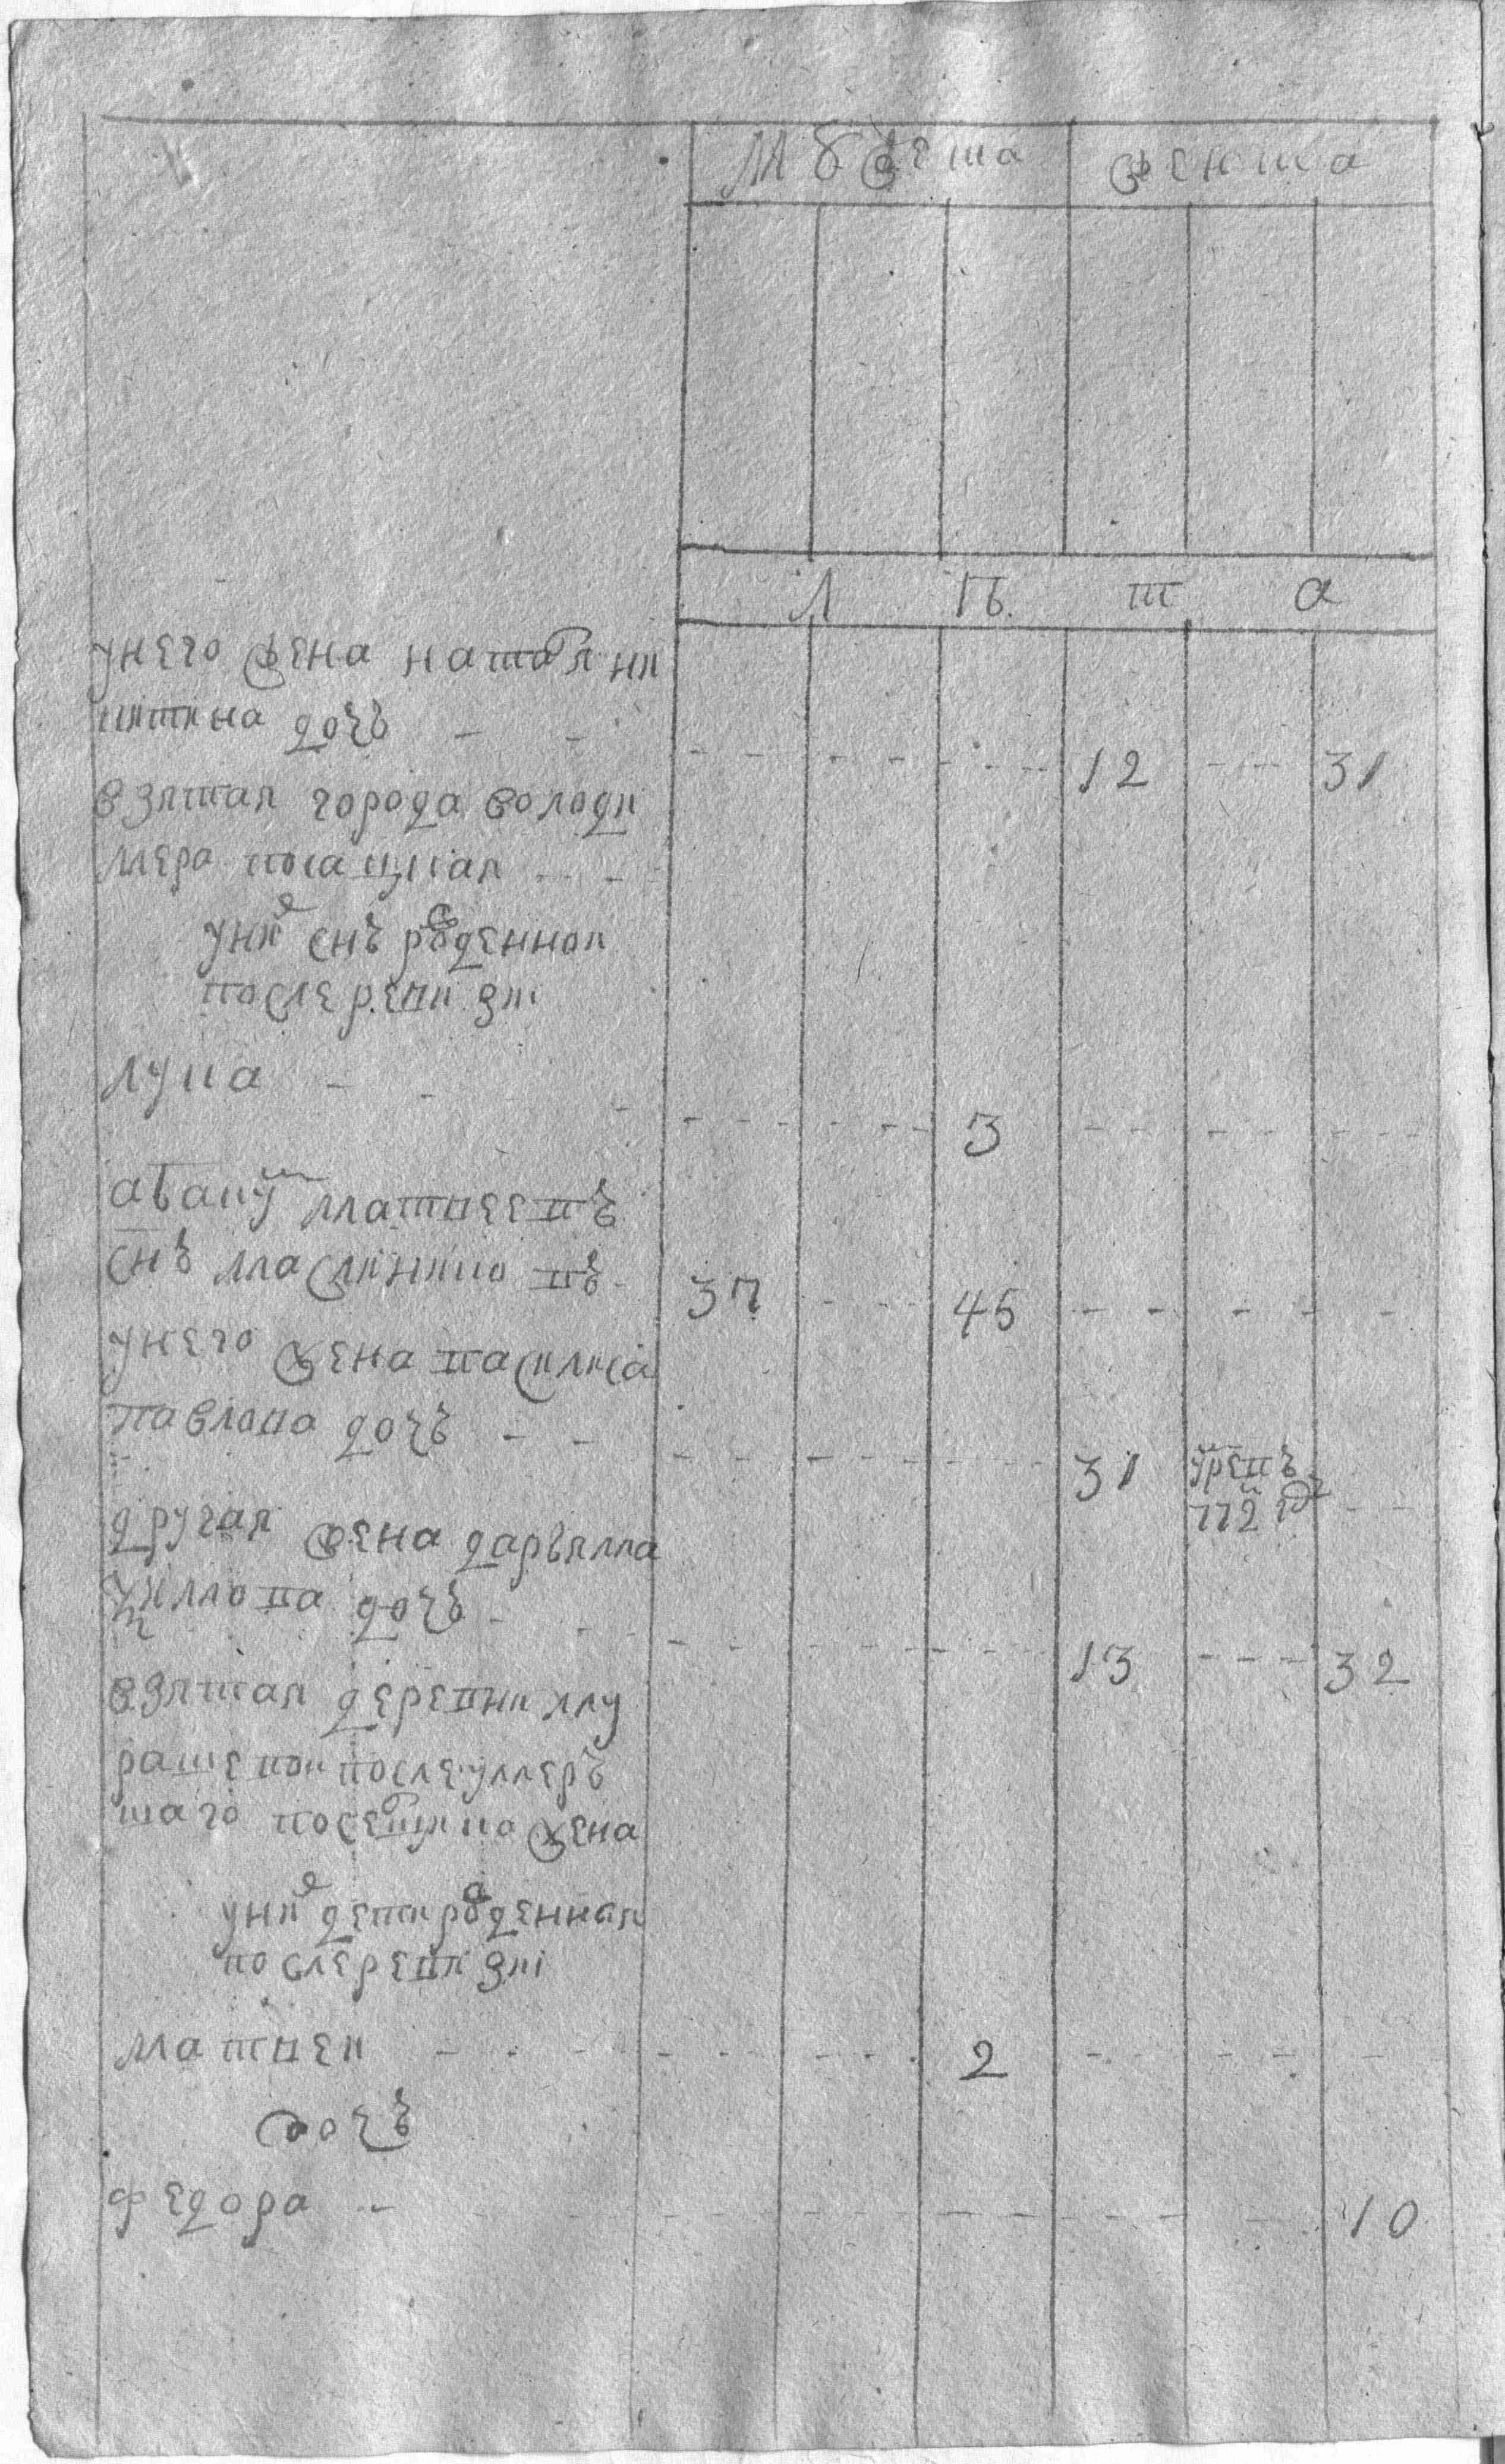 мужеска женска
л ѣ т а
у него жена наталя ни
китина дочь - -
12 - - 31
взятая города володи
мера посацкая - -
у них снъ рожденной
после ревизии
лука - - - 3 - - -
абакум матвеевъ
снъ маслениковъ 37 - - 45 - - -
у него жена василиса
павлова дочь - - 31 - -
772 году
другая жена дарья ма
ѯимова дочь - - 13 - - 32
взятая деревни му
после умеръ
шаго жена
у них дети рожденная
после ревизии
матвей - - - 2 - - -
дочь
федора - - - 10